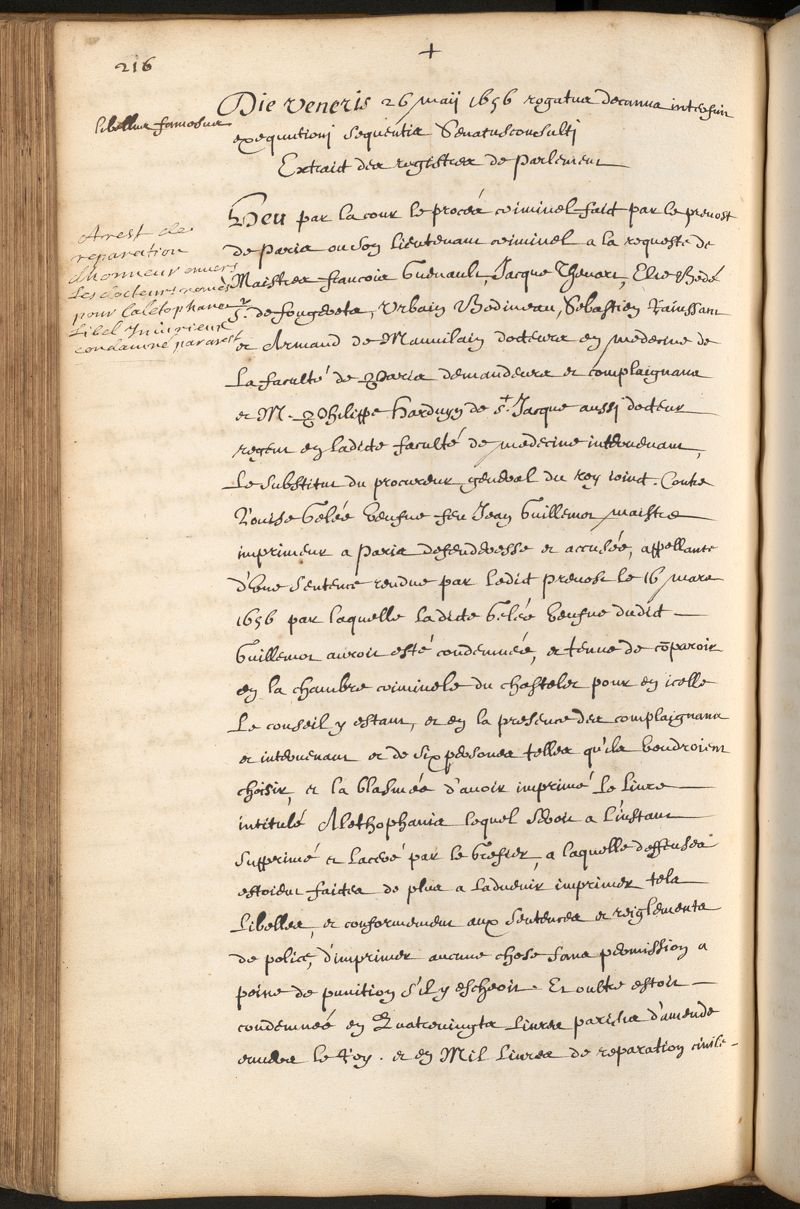 216
+
Die Veneris 26 maij 1656 rogatus decanus interfui
libellus famosus
exequutioni sequentis Senatusconsulti
Extraict des registres de Parlement
Arrest de
reparation
d'honneur envers
Les docteurs només
pour l'aletophanes
Libel Injurieux
condamné par arest
Veu par la cour le procés criminel faict par le prevost
de Paris ou son lieutenant criminel a la requeste de
Maistres francois Guenault, Jacque Thevart, Elie Bedé
Sr. de fougerets, Urbain Bodineau, Sebastien Rainssant
et Armand de Mauvilain docteurs en medecine de
La faculté de Paris demandeurs et complaignans
et M. Philippe Harduyn de St. Jacque aussi docteur
regent en ladicte faculté de medecine intervenant,
Le substitut du procureur general du roy joinct. Contre
Louise Gelée veufue feu Jean Guillemot maistre
imprimeur a Paris defenderesse et accusée, appellante
d'Une sentence rendue par Ledict prevost le 16 mars
1656 par laquelle ladicte Gelée veufue dudict
Guillemot auroit esté condemnée, et tenue de cōparoir
en la chambre criminele du chastelet pour en icelle
Le conseil y estant, et en la presence des complaignans
et intervenant et de six persones telles qu'ils voudroient
choisir, et la blasmée d'avoir imprimé Le Livre
intitulé Alethophanes lequel seroit a L'instant
supprimé et laceré par le Grefier, a laquelle deffenses
estoient faictes de plus a Ladvenir imprimer tels
Libelles, et conformement aux sentences et reiglements
de police, d'imprimer aucune chose sans permission a
peine de punition s'il y escheoit. Et oultre estoit
condemnée en Quatrevingts Livres parisis d'amende
envers le Roy. et en Mil Livres de reparation civile